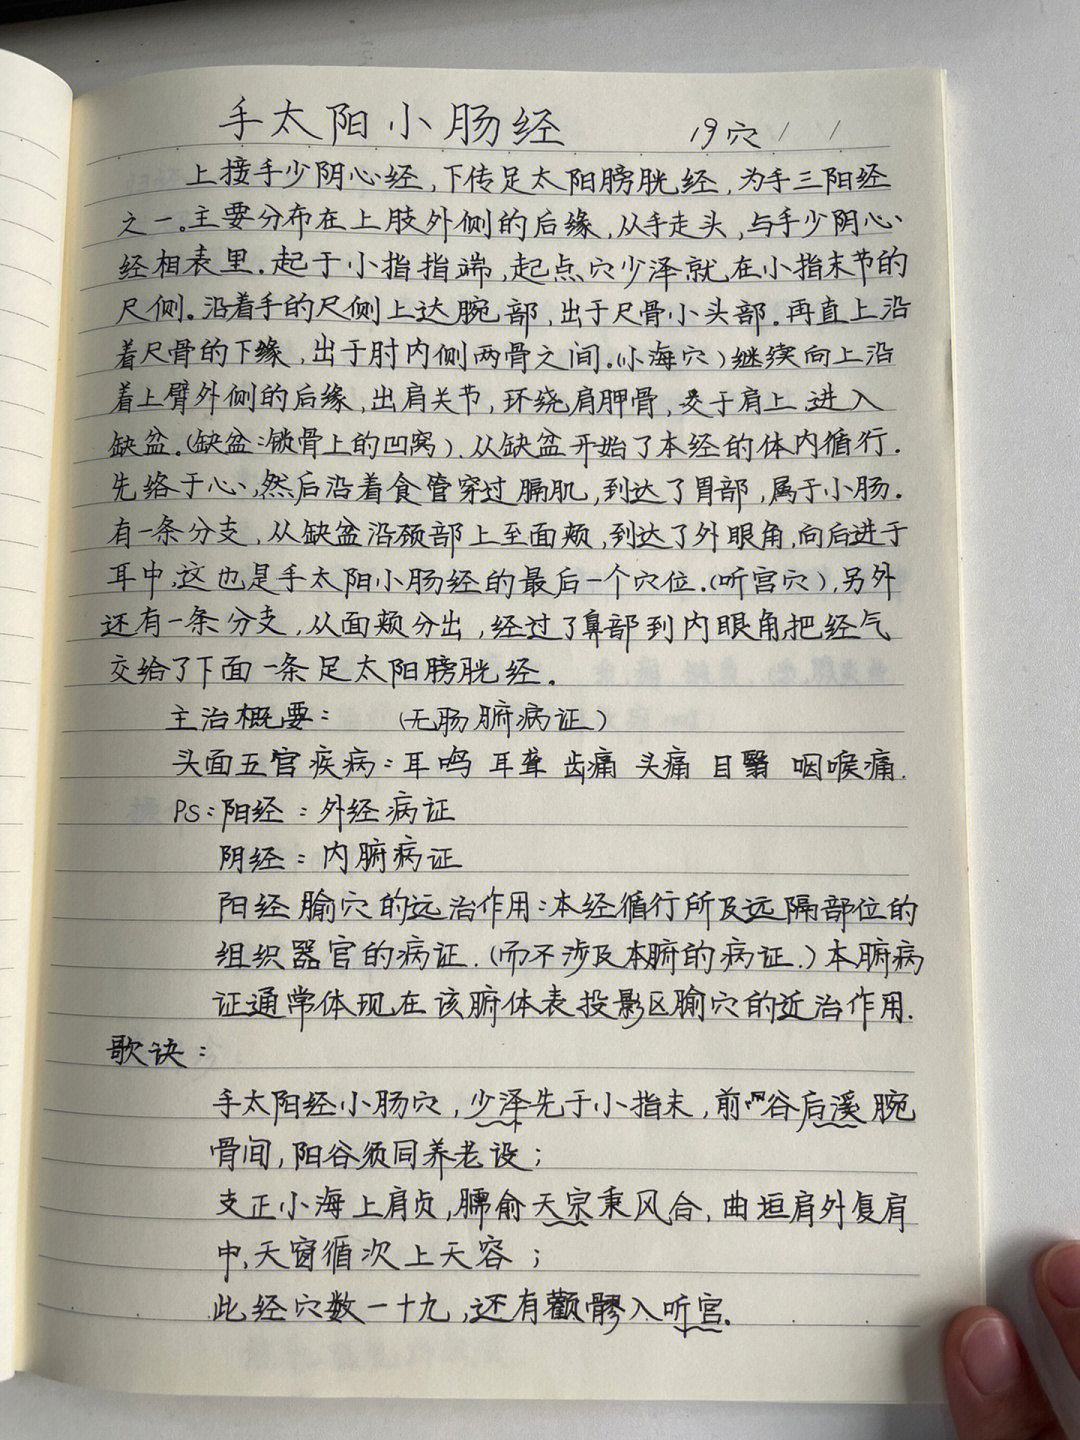 手太阳小肠经 19穴 / /
上接手少阴心经,下传足太阳膀胱经,为手三阳经
之一。主要分布在上肢外侧的后缘,从手走头,与手少阴心
经相表里.起于小指指端,起点穴少泽就在小指末节的
尺侧。沿着手的尺侧上达腕部,出于尺骨小头部.再直上沿
着尺骨的下缘,出于肘内侧两骨之间.(小海穴)继续向上沿
着上臂外侧的后缘,出肩关节,环绕肩胛骨,交于肩上,进入
缺盆.(缺盆:锁骨上的凹窝).从缺盆开始了本经的体内循行.
先络于心,然后沿着食管穿过膈肌,到达了胃部,属于小肠.
有一条分支,从缺盆沿颈部上至面颊,到达了外眼角,向后进于
耳中,这也是手太阳小肠经的最后一个穴位.(听宫穴),另外
还有一条分支,从面颊分出,经过了鼻部到内眼角,把经气
交给了下面一条足太阳膀胱经.
主治概要: (无肠腑病证)
头面五官疾病:耳鸣 耳聋 齿痛 头痛 目翳 咽喉痛.
PS:阳经:外经病证
阴经:内腑病证
阳经腧穴的远治作用:本经循行所及远隔部位的
组织器官的病证.(而不涉及本腑的病证.)本腑病
证通常体现在该腑体表投影区腧穴的近治作用.
歌诀:
手太阳经小肠穴,少泽先于小指末,前谷后溪腕
骨间,阳谷须同养老设;
支正小海上肩贞,臑俞天宗秉风合,曲垣肩外复肩
中,天窗循次上天容;
此经穴数一十九,还有颧髎入听宫.